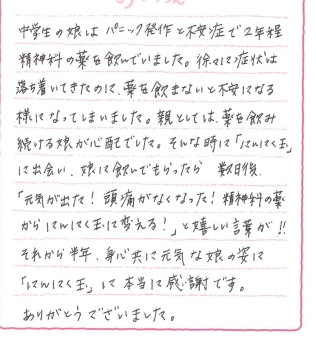 中学生の娘はパニック発作と不安症で2年程
精神科の薬を飲んでいました。徐々に症状は
落ち着いてきたのに、薬を飲まないと不安になる
様になってしまいました。親としては、薬を飲み
続ける娘が心配でした。そんな時に「にんにく玉」
に出会い、娘に飲んでもらったら 数日後、
「元気が出た！頭痛がなくなった！精神科の薬
からにんにく玉に変える！」と嬉しい言葉が!!
それから半年、身心共に元気な娘の姿に
「にんにく玉」に本当に感謝です。
ありがとうございました。